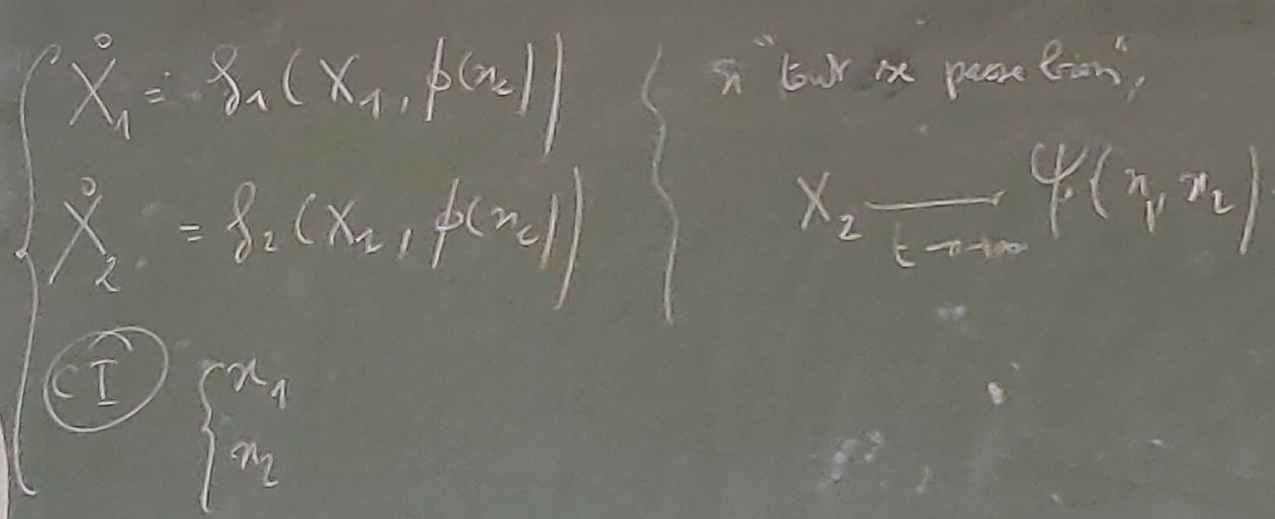 Ẋ₁ = f₁(X₁, p(x_c))
Ẋ₂ = f₂(X₂, p(x_c))
CI { x₁
x₂
si "tout se passe bien",
X₂ ⟶ ψ(x₁, x₂)
t→+∞